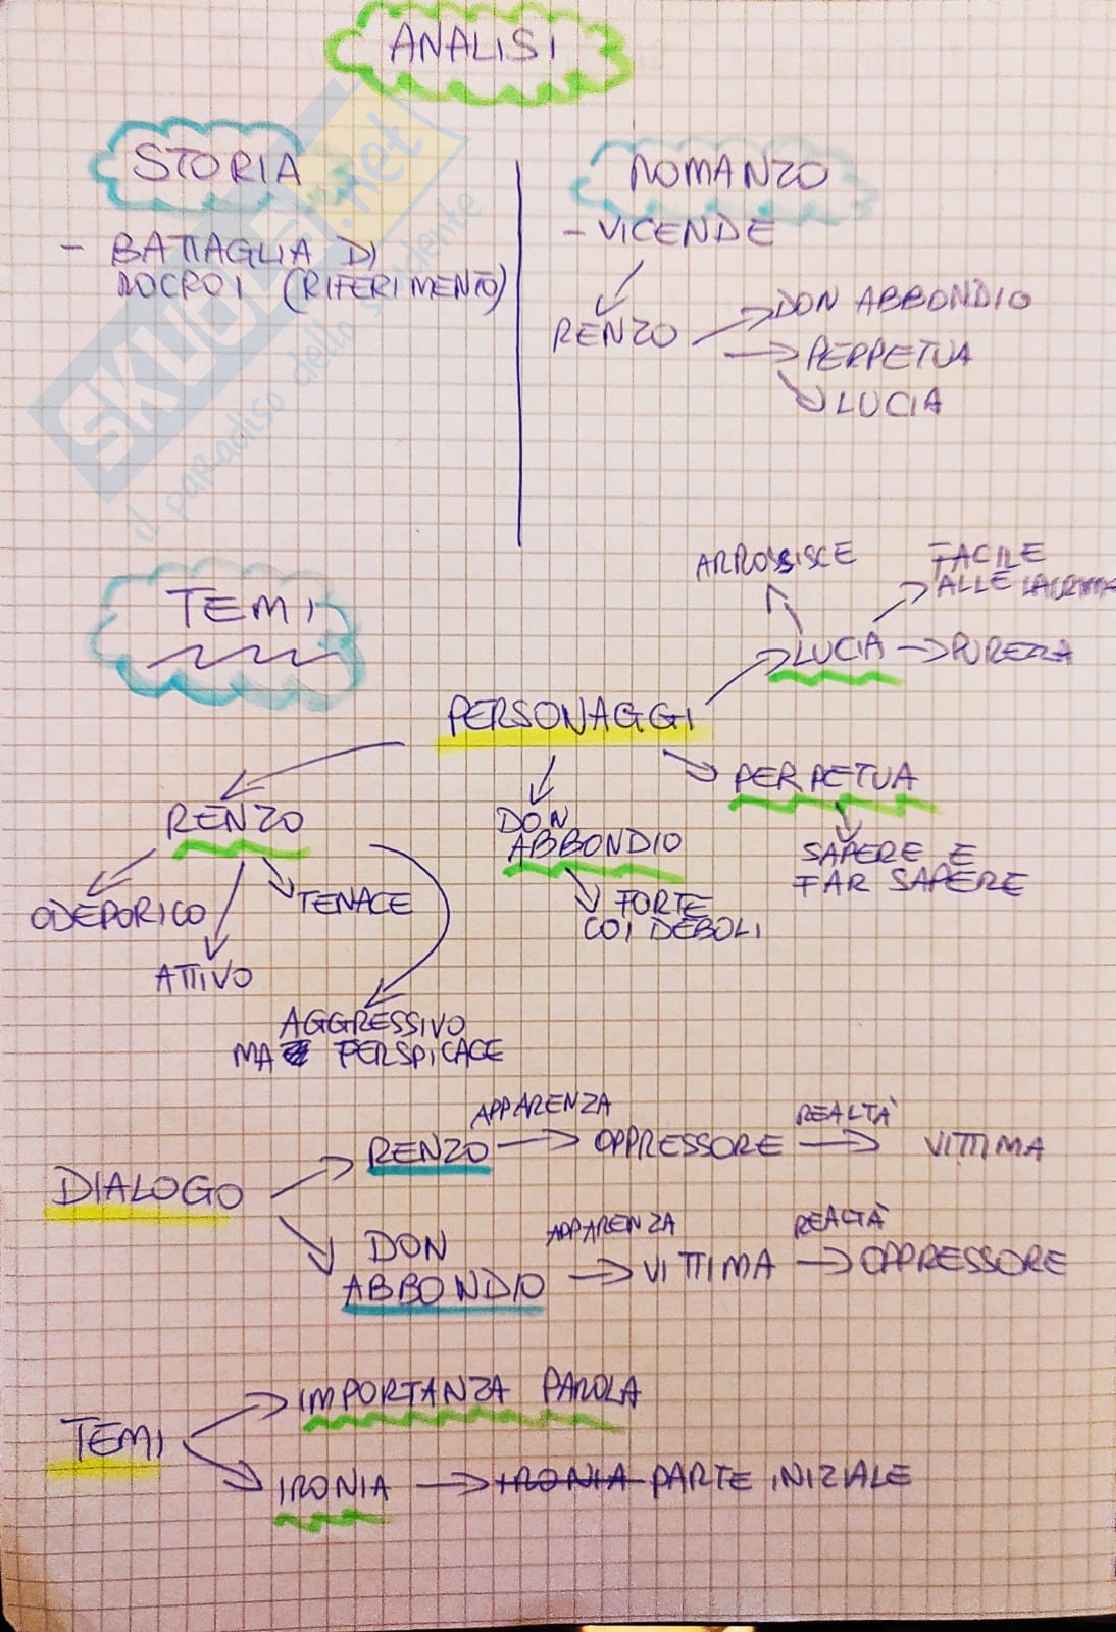 ANALISI
STORIA
- BATTAGLIA DI
ROCROI (RIFERIMENTO)
ROMANZO
- VICENDE
RENZO
DON ABBONDIO
PERPETUA
LUCIA
SKUOLA.net
il paradiso dello studente
TEMI
ARROSSISCE
FACILE
ALLE LACRIME
LUCIA
PUREZZA
PERSONAGGI
PERPETUA
SAPERE E
FAR SAPERE
RENZO
ODEPORICO
ATTIVO
TENACE
AGGRESSIVO
MA PERSPICACE
DON
ABBONDIO
FORTE
COI DEBOLI
DIALOGO
RENZO
APPARENZA
OPPRESSORE
REALTÀ
VITTIMA
DON
ABBONDIO
APPARENZA
VITTIMA
REALTÀ
OPPRESSORE
TEMI
IMPORTANZA PAROLA
IRONIA
IRONIA PARTE INIZIALE